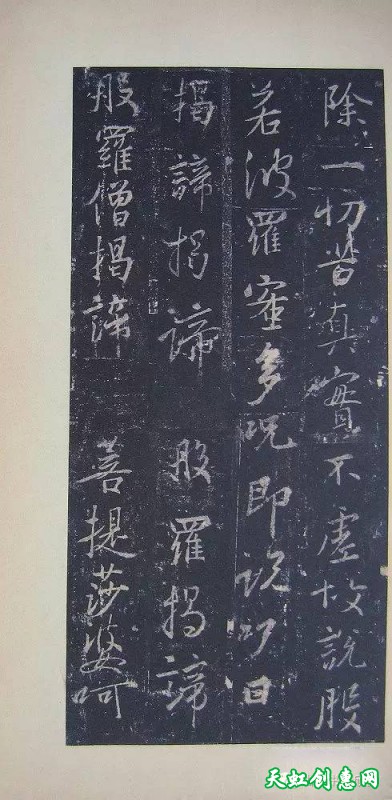 除一切苦真實不虛故說般
若波羅蜜多呪即說呪曰
揭諦揭諦 般羅揭諦
般羅僧揭諦 菩提莎婆呵
天虹创惠网